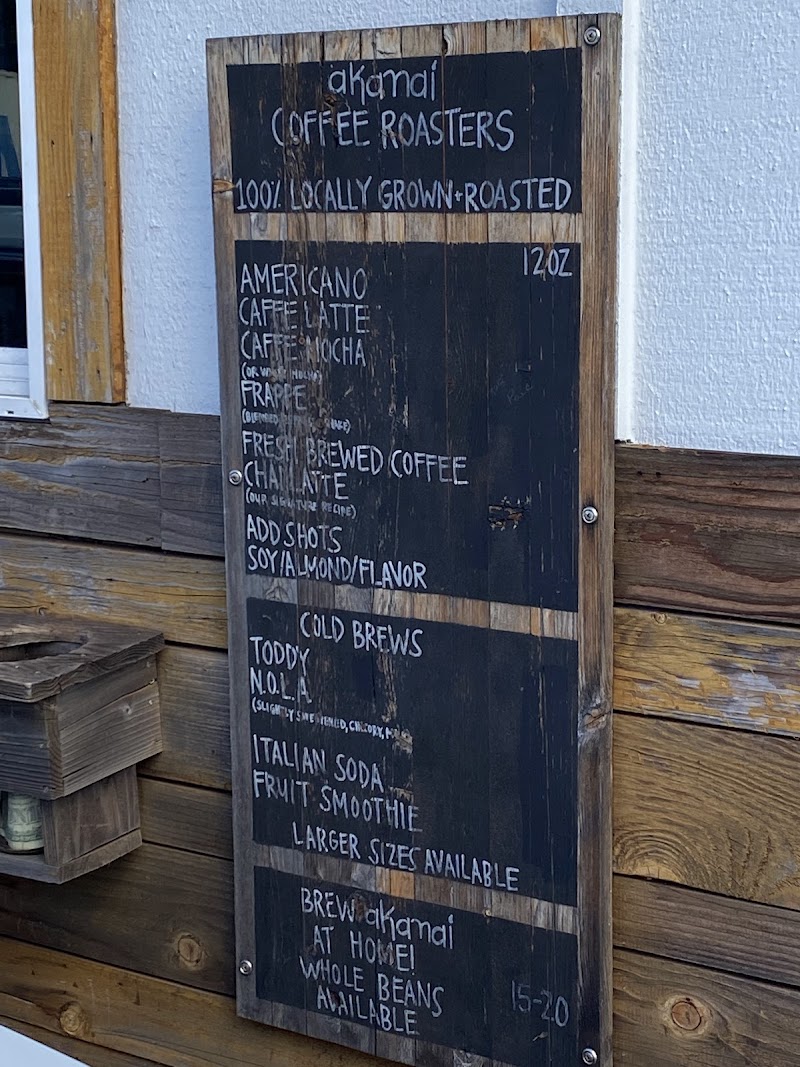 akamai
COFFEE ROASTERS
100% LOCALLY GROWN+ROASTED
12OZ
AMERICANO
CAFFE LATTE
CAFFE MOCHA
(OR WHITE MOCHA)
FRAPPE
(BLENDED
FRESH BREWED COFFEE
CHAI LATTE
(OUR SIGNATURE RECIPE)
ADD SHOTS
SOY/ALMOND/FLAVOR
COLD BREWS
TODDY
N.O.L.A
(SLIGHTLY SWEETENED, CHICORY,
ITALIAN SODA
FRUIT SMOOTHIE
LARGER SIZES AVAILABLE
BREW akamai
AT HOME!
WHOLE BEANS
AVAILABLE
15-20